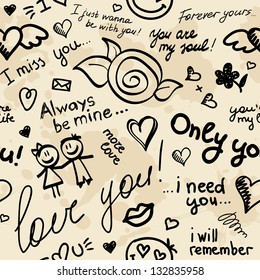 I just wanna
be with you!
Forever yours...
You are
my soul!
I miss you...
Always
be mine...
more
love
Only yo
you'
my
life
u!
love you!
...i need
you...
i will
remember
www.shutterstock.com · 132835958